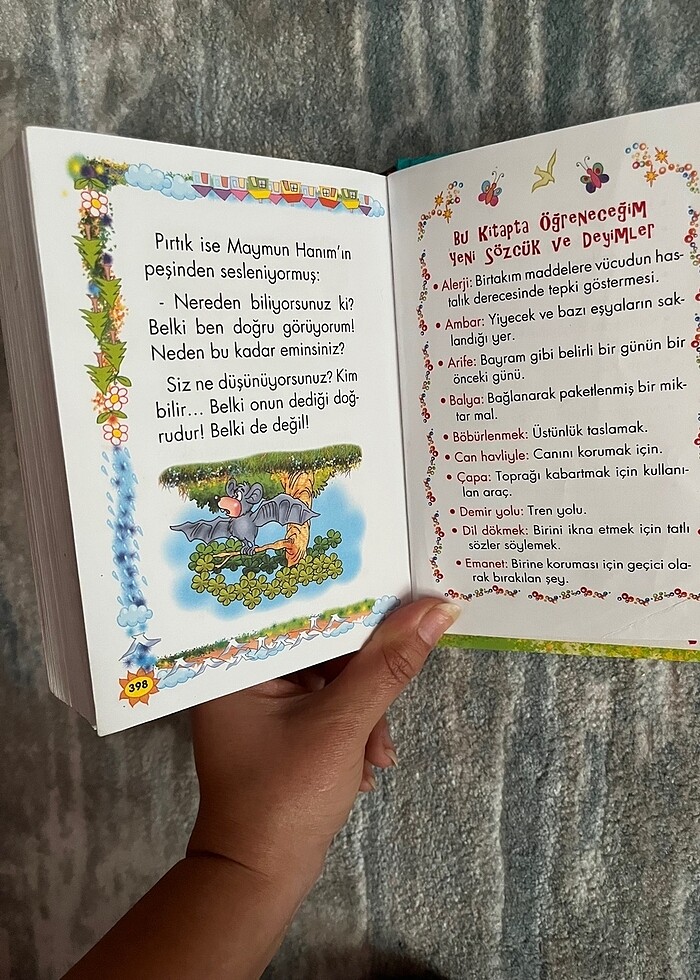 Pırtık ise Maymun Hanım'ın
peşinden sesleniyormuş:
- Nereden biliyorsunuz ki?
Belki ben doğru görüyorum!
Neden bu kadar eminsiniz?
Siz ne düşünüyorsunuz? Kim
bilir... Belki onun dediği doğ-
rudur! Belki de değil!
398
Bu Kitapta Öğreneceğim
Yeni Sözcük ve Deyimler
• Alerji: Birtakım maddelere vücudun has-
talık derecesinde tepki göstermesi.
• Ambar: Yiyecek ve bazı eşyaların sak-
landığı yer.
• Arife: Bayram gibi belirli bir günün bir
önceki günü.
• Balya: Bağlanarak paketlenmiş bir mik-
tar mal.
• Böbürlenmek: Üstünlük taslamak.
• Can havliyle: Canını korumak için.
• Çapa: Toprağı kabartmak için kullanı-
lan araç.
• Demir yolu: Tren yolu.
• Dil dökmek: Birini ikna etmek için tatlı
sözler söylemek.
• Emanet: Birine koruması için geçici ola-
rak bırakılan şey.